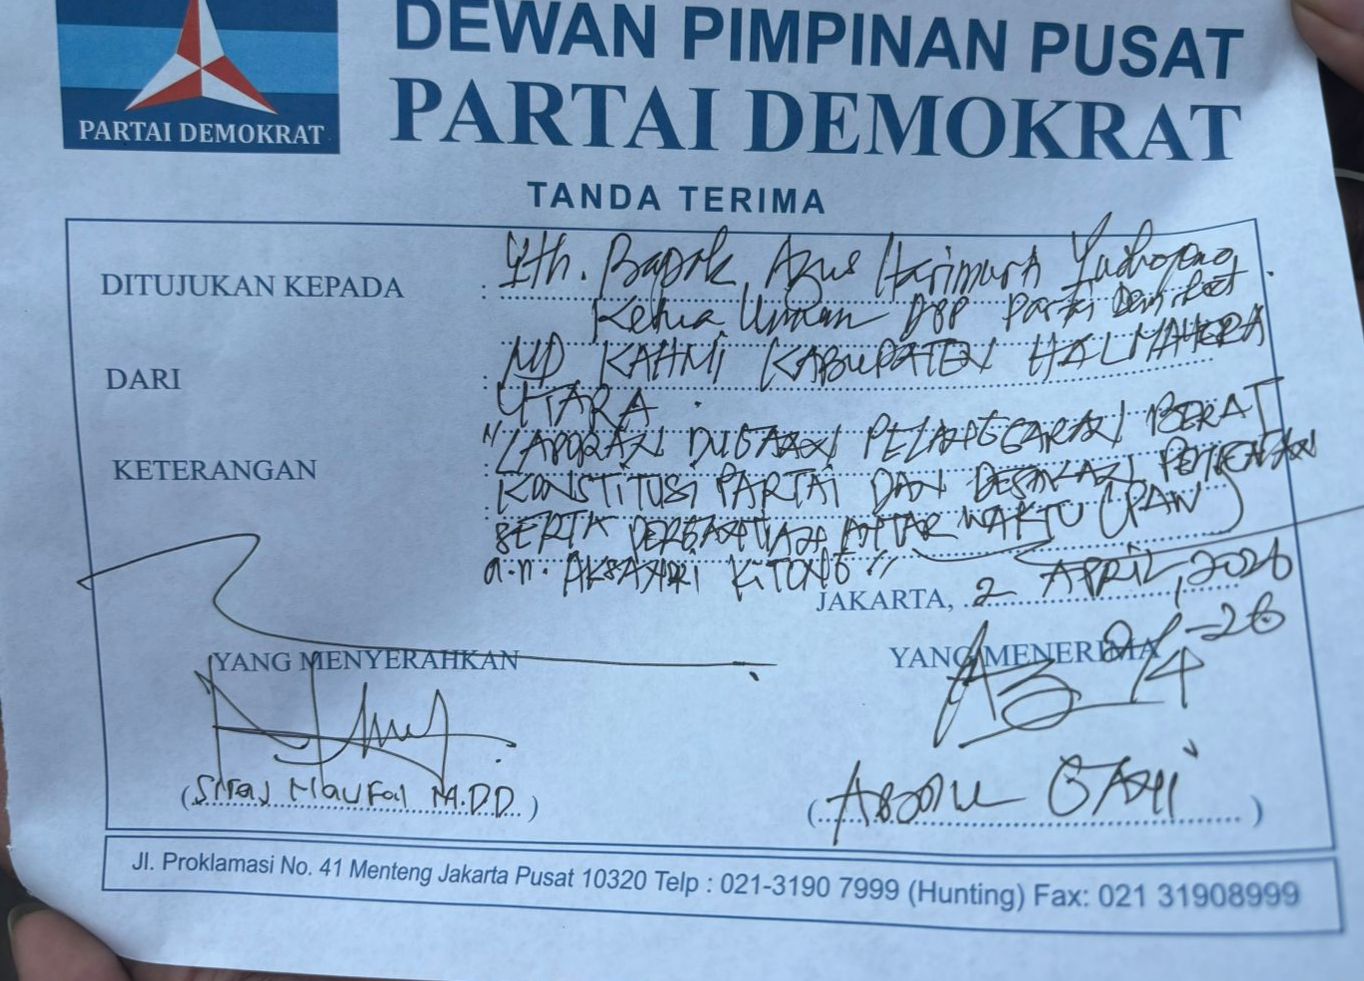 DEWAN PIMPINAN PUSAT
PARTAI DEMOKRAT
PARTAI DEMOKRAT
TANDA TERIMA
DITUJUKAN KEPADA : Yth. Bapak Agus Harimurti Yudhoyono.
Ketua Umum DPP Partai Demokrat
DARI : MD KAHMI KABUPATEN HALMAHERA
UTARA.
KETERANGAN : "LAPORAN DUGAAN PELANGGARAN BERAT
KONSTITUSI PARTAI DAN DESAKAN PEMECATAN
SERTA PERGANTIAN ANTAR WAKTU (PAW)
a.n. AKSANDRI KITONG"
JAKARTA, 2 APRIL, 2026
YANG MENYERAHKAN
YANG MENERIMA
(Siraj Naufal M.D.D.)
(Abdul Gani)
Jl. Proklamasi No. 41 Menteng Jakarta Pusat 10320 Telp : 021-3190 7999 (Hunting) Fax: 021 31908999